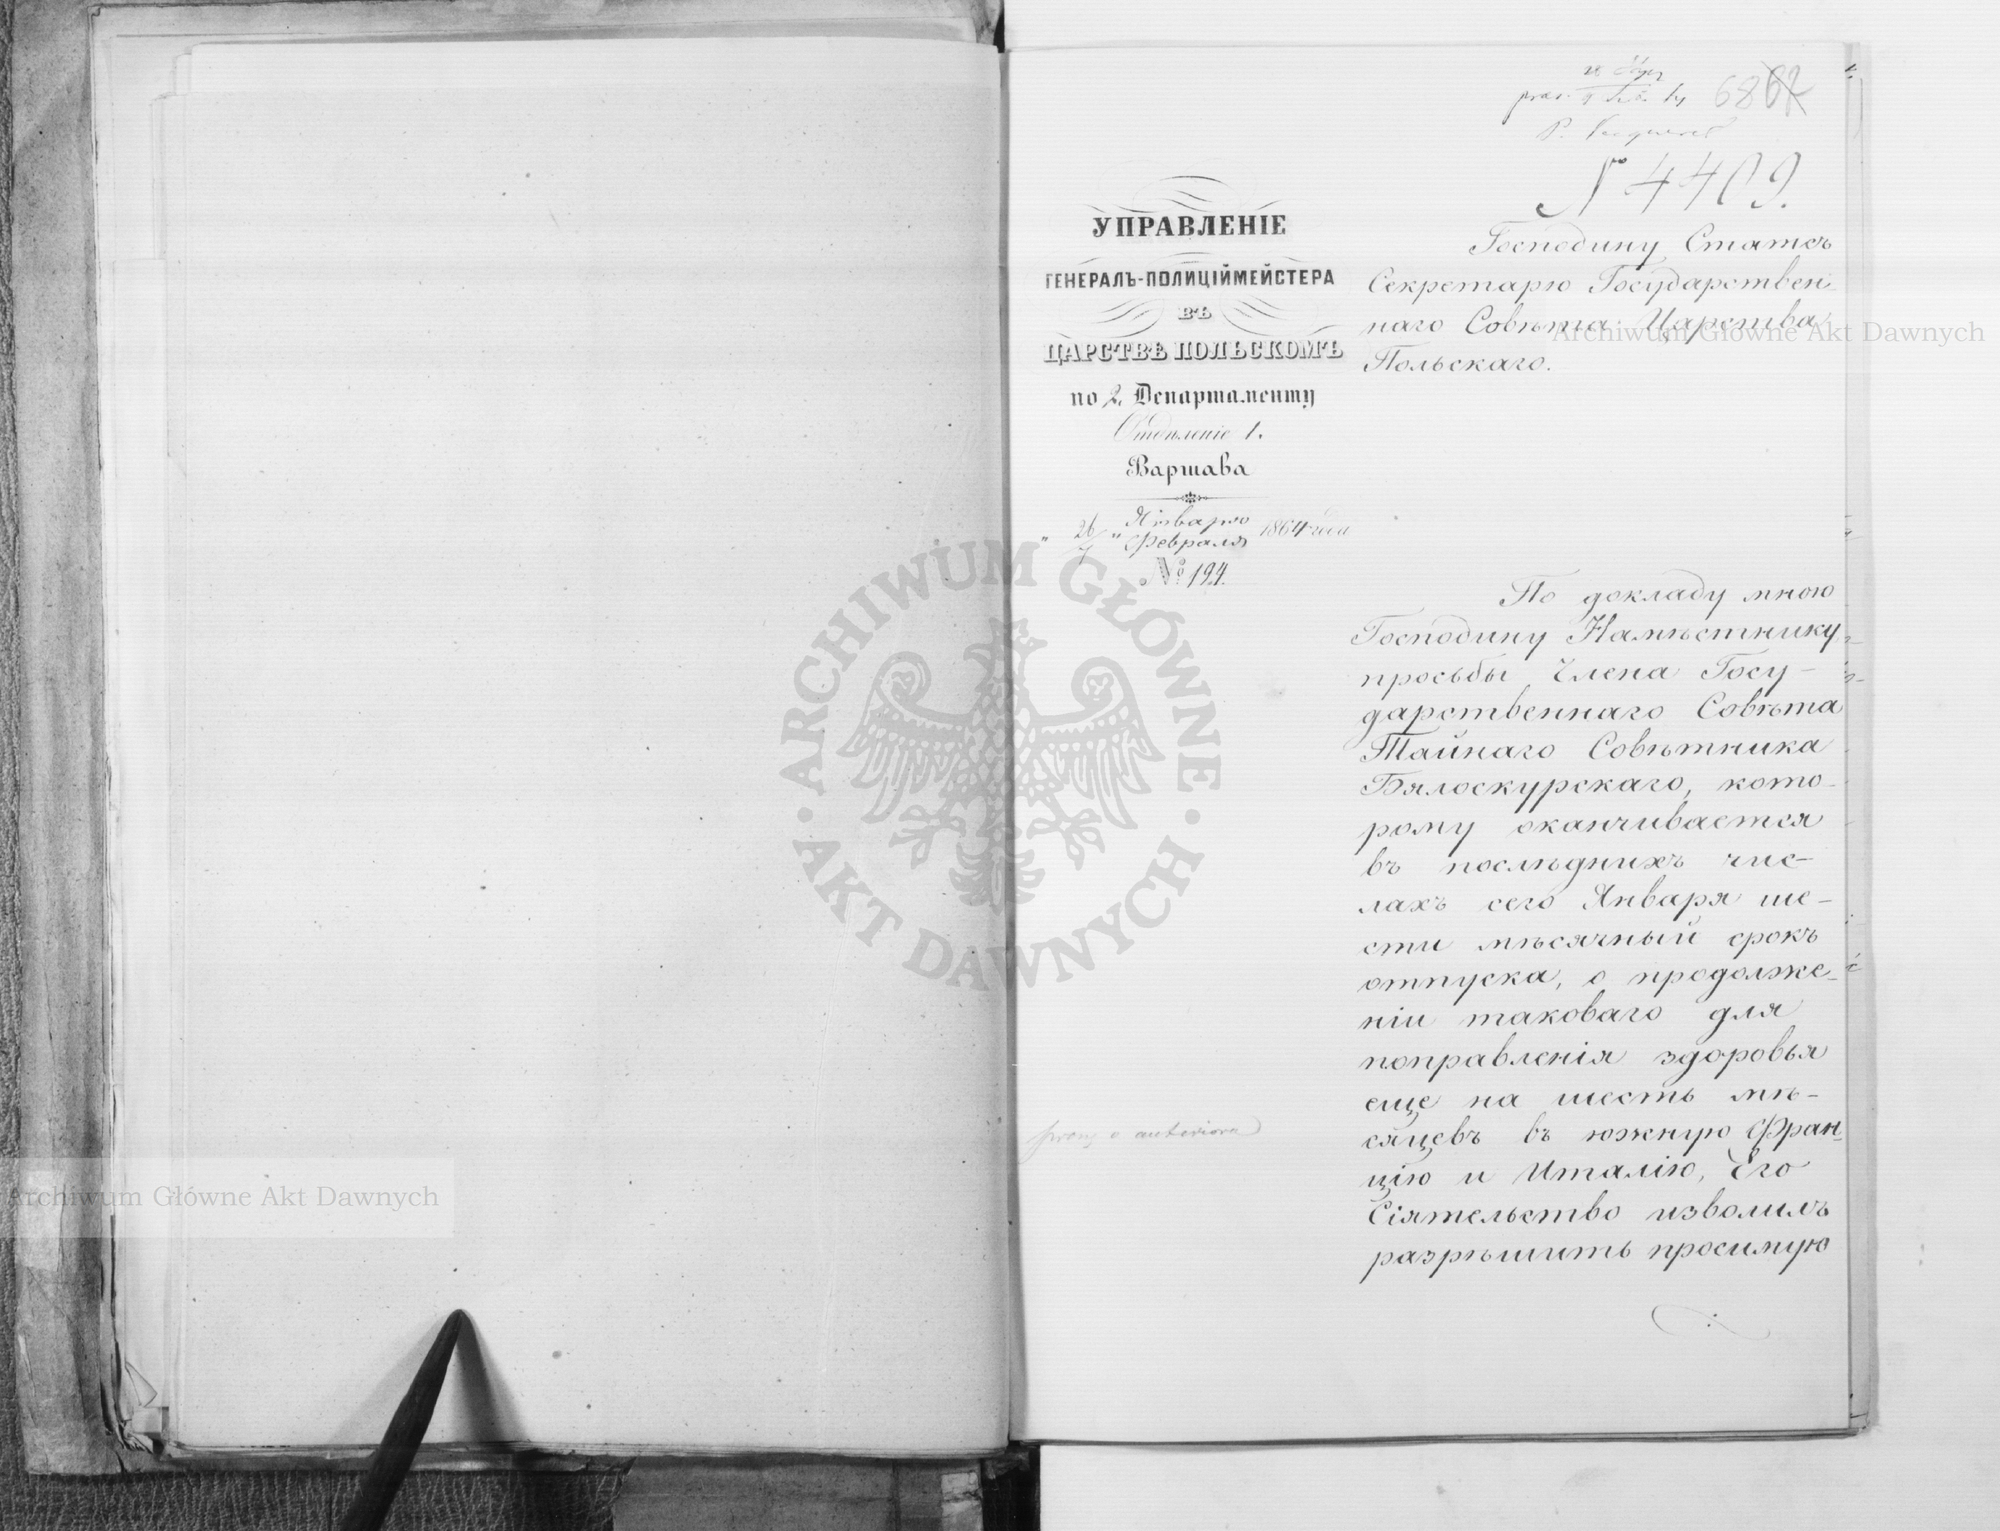 6862
№ 4409.
УПРАВЛЕНІЕ
ГЕНЕРАЛЪ-ПОЛИЦІЙМЕЙСТЕРА
ВЪ
ЦАРСТВѢ ПОЛЬСКОМЪ
по 2. Департаменту
Отдѣленіе 1.
Варшава
" 26/7 " Января/Февраля 1864 года
№ 194.
Господину Статсъ
Секретарю Государствен-
наго Совѣта Царства
Польскаго.
По докладу мною
Господину Намѣстнику
просьбы Члена Госу-
дарственнаго Совѣта
Тайнаго Совѣтника
Бялоскурскаго, кото-
рому оканчивается
въ послѣднихъ чис-
лахъ сего Января ше-
сти мѣсячный срокъ
отпуска, о продолже-
ніи таковаго для
поправленія здоровья
еще на шесть мѣ-
сяцевъ въ южную Фран-
цію и Италію, Его
Сіятельство изволилъ
разрѣшить просимую
a anteriora
Archiwum Główne Akt Dawnych
Archiwum Główne Akt Dawnych
ARCHIWUM GŁÓWNE · AKT DAWNYCH ·